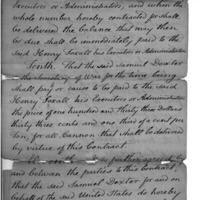 Executors or Administrators, and when the
whole number hereby contracted for shall
be delivered the balance that may then
be due shall be immediately paid to the
said Henry Foxall his Executors or Administrators
Tenth. That the said Samuel Dexter
Secretary of War for the time being
shall pay or cause to be paid to the said
Henry Foxall his Executors or Administrators
the price of one hundred and thirty three dollars
thirty three cents and one third of a cent per
ton, for all Cannon that shall be delivered
by virtue of this Contract.
further agreed by
and between the parties to this contract,
that the said Samuel Dexter for and on
behalf of the said United States do hereby